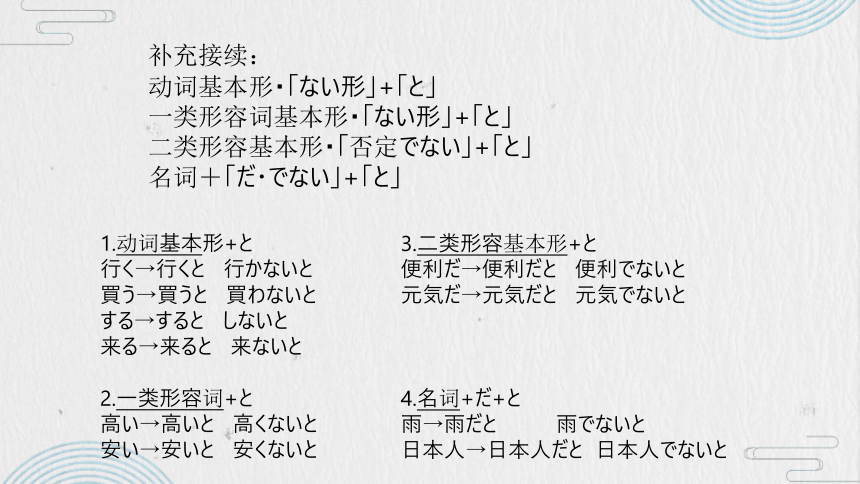 补充接续：
动词基本形・「ない形」+「と」
一类形容词基本形・「ない形」+「と」
二类形容基本形・「否定でない」+「と」
名词＋「だ・でない」+「と」
1.动词基本形+と
行く→行くと 行かないと
買う→買うと 買わないと
する→すると しないと
来る→来ると 来ないと
2.一类形容词+と
高い→高いと 高くないと
安い→安いと 安くないと
3.二类形容基本形+と
便利だ→便利だと 便利でないと
元気だ→元気だと 元気でないと
4.名词+だ+と
雨→雨だと 雨でないと
日本人→日本人だと 日本人でないと